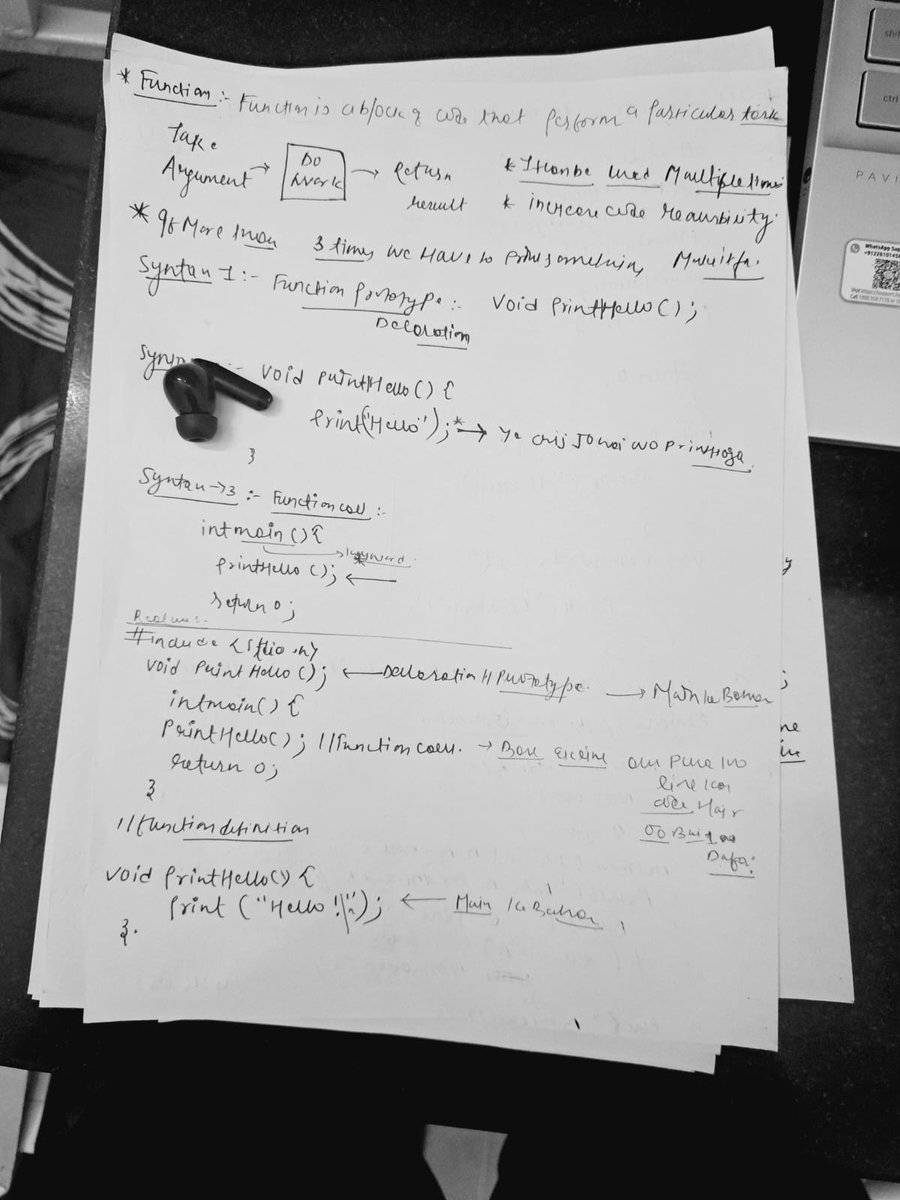 * Function :- Function is a block of code that perform a particular task
Take Argument → Do Work → Return result
* It can be used Multiple times
* increase code reausibility.
* If More than 3 times we Have to print something
Syntax 1 :- Function prototype :- Void PrintHello ( );
Declaration
:- void printHello ( ) {
print("Hello"); * → Ye chij Jo hai wo Print Hoga
}
Syntax → 3 :- Function call :-
int main ( ) {
keyword
printHello ( ); ←
return 0;
#include <stdio.h>
void printHello ( ); ← Declaration // Prototype. → Main ke Bahar
int main ( ) {
PrintHello ( ); // function call. →
return 0;
}
line
code
// function definition
void printHello ( ) {
print ("Hello!\n"); ← Main ke Bahar
}.
sh
ctrl
PAVI
WhatsApp Sup